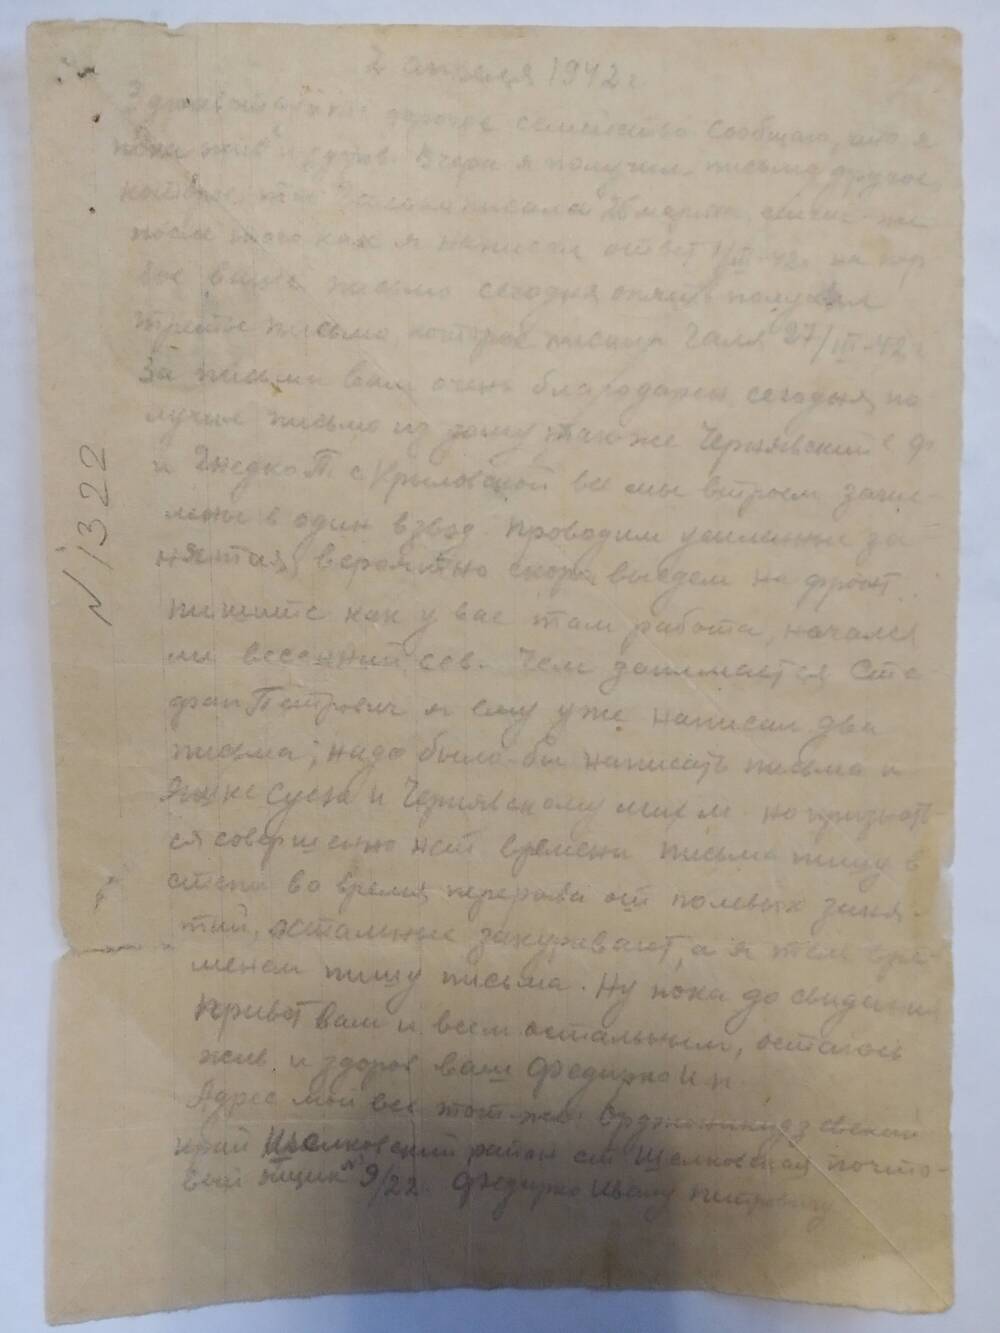 2 апреля 1942 г
Здравствуйте дорогое семейство Сообщаю, что я
пока жив и здоров. Вчера я получил письмо другое,
которое писала марта,
после того как я написал ответ 1/III-42г. на пер
вое ваше письмо сегодня опять получил
третье письмо, которое писала Галя 27/III-42 г
За письма вам очень благодарен сегодня по
лучил письмо из дому также Чернявский Ф
и Гнедко П с Крыловской все мы втроем зачис-
лены в один взвод. Проводим усиленные за
нятия, вероятно скоро выедем на фронт..
пишите как у вас там работа, начался
ли весенний сев. Чем занимается Сте
фан Петрович я ему уже написал два
письма; надо было-бы написать письма и
Суса и Чернявскому но признать
ся совершенно нет времени письмо пишу в
степи во время перерыва от полевых заня-
тий, остальные закуривают, а я тем вре
менем пишу письма. Ну пока до свидания
привет вам и всем остальным, остаюсь
жив и здоров ваш Федирко И п.
Адрес мой все тот-же: Орджоникидзевский
край Шелковский район ст Щелковская почто-
вый ящик № 9/22. Федирко Ивану Питровичу
N 1322